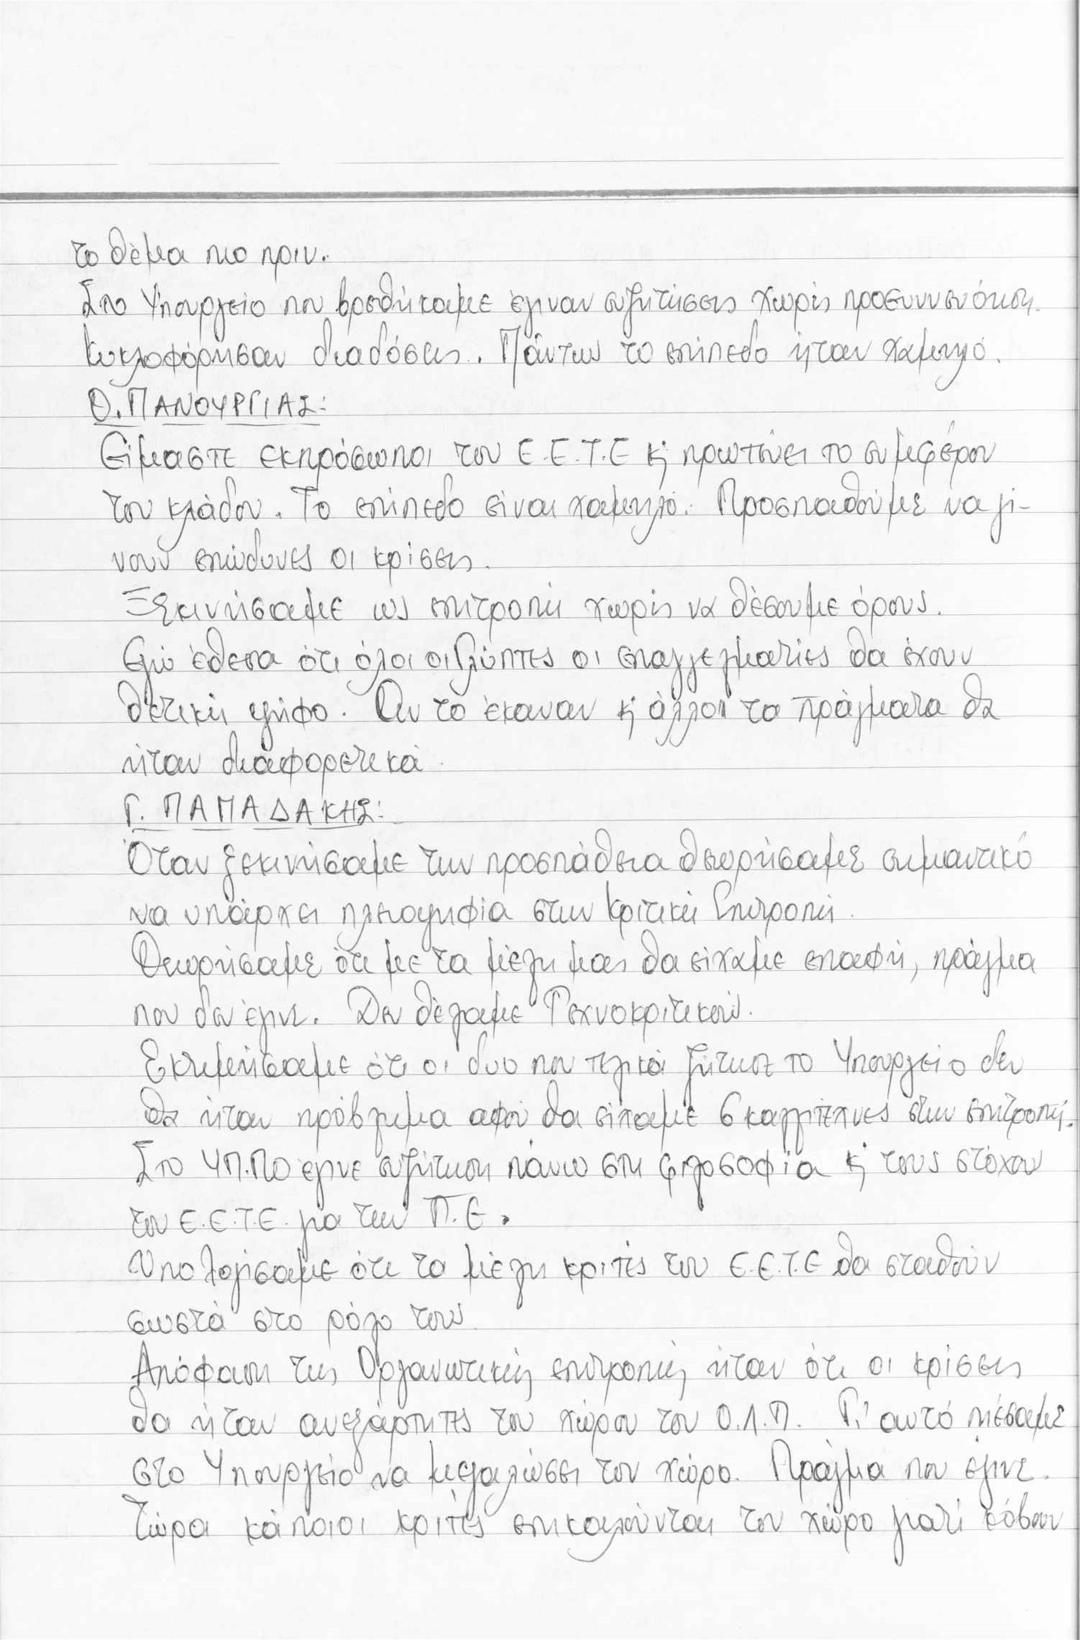 το θέμα πιο πριν.
Στο Υπουργείο που βρεθήκαμε έγιναν συζητήσεις χωρίς προσυνενόηση.
Κυκλοφόρησαν διαδόσεις. Πάντως το επίπεδο ήταν χαμηλό.
Θ. ΠΑΝΟΥΡΓΙΑΣ:
Είμαστε εκπρόσωποι του Ε.Ε.Τ.Ε κ πρωτεύει το συμφέρον
του κλάδου. Το επίπεδο είναι χαμηλό. Προσπαθούμε να γί-
νουν επώδυνες οι κρίσεις.
Ξεκινήσαμε ως επιτροπή χωρίς να θέσουμε όρους.
Εγώ έθεσα ότι όλοι οι Γλύπτες οι επαγγελματίες θα έχουν
θετική ψήφο. Αν το έκαναν κ άλλοι τα πράγματα θα
ήταν διαφορετικά.
Γ. ΠΑΠΑΔΑΚΗΣ:
Όταν ξεκινήσαμε την προσπάθεια θεωρήσαμε σημαντικό
να υπάρχει πλειοψηφία στην Κριτική Επιτροπή.
Θεωρήσαμε ότι με τα μέλη μας θα είχαμε επαφή, πράγμα
που δεν έγινε. Δεν θέλαμε Τεχνοκριτικούς.
Εκτιμήσαμε ότι οι δυο που τελικά ζήτησε το Υπουργείο δεν
θα ήταν πρόβλημα αφού θα είχαμε 6 καλλιτέχνες στην επιτροπή.
Στο ΥΠ.ΠΟ έγινε συζήτηση πάνω στη φιλοσοφία κ τους στόχους
του Ε.Ε.Τ.Ε. για την Π.Ε.
Υπολογίσαμε ότι τα μέλη κριτές του Ε.Ε.Τ.Ε θα σταθούν
σωστά στο ρόλο τους.
Απόφαση της Οργανωτικής επιτροπής ήταν ότι οι κρίσεις
θα ήταν ανεξάρτητες του χώρου του Ο.Λ.Π. Γι' αυτό πιέσαμε
στο Υπουργείο να μεγαλώσει τον χώρο. Πράγμα που έγινε.
Τώρα κάποιοι κριτές επικαλούνται τον χώρο γιατί κόβουν